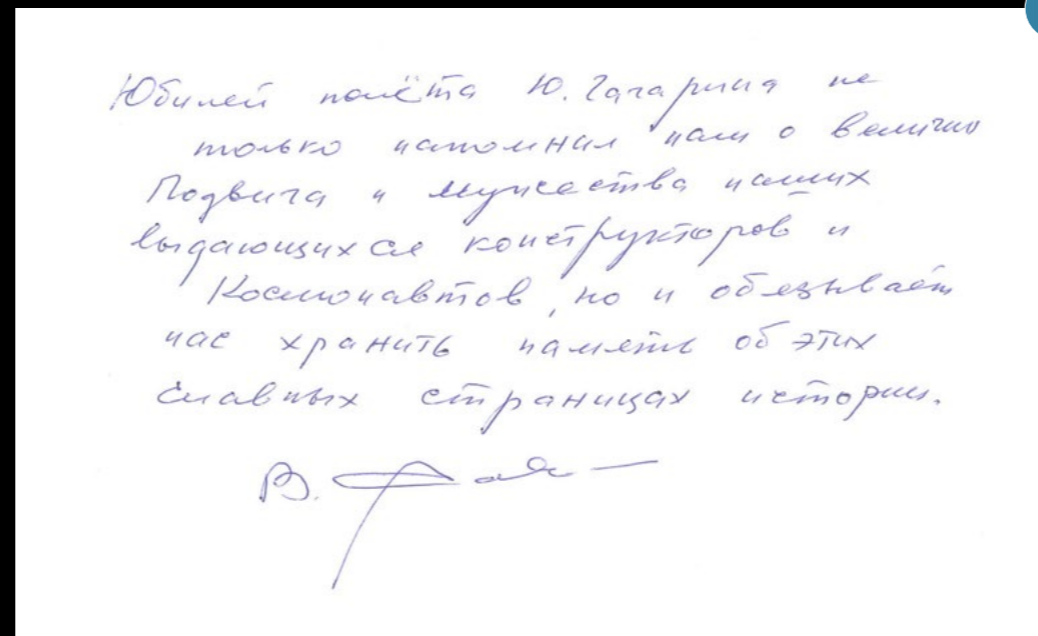 Юбилей полёта Ю. Гагарина не
только напомнил нам о величии
Подвига и мужества наших
выдающихся конструкторов и
Космонавтов, но и обязывает
нас хранить память об этих
славных страницах истории.
В.